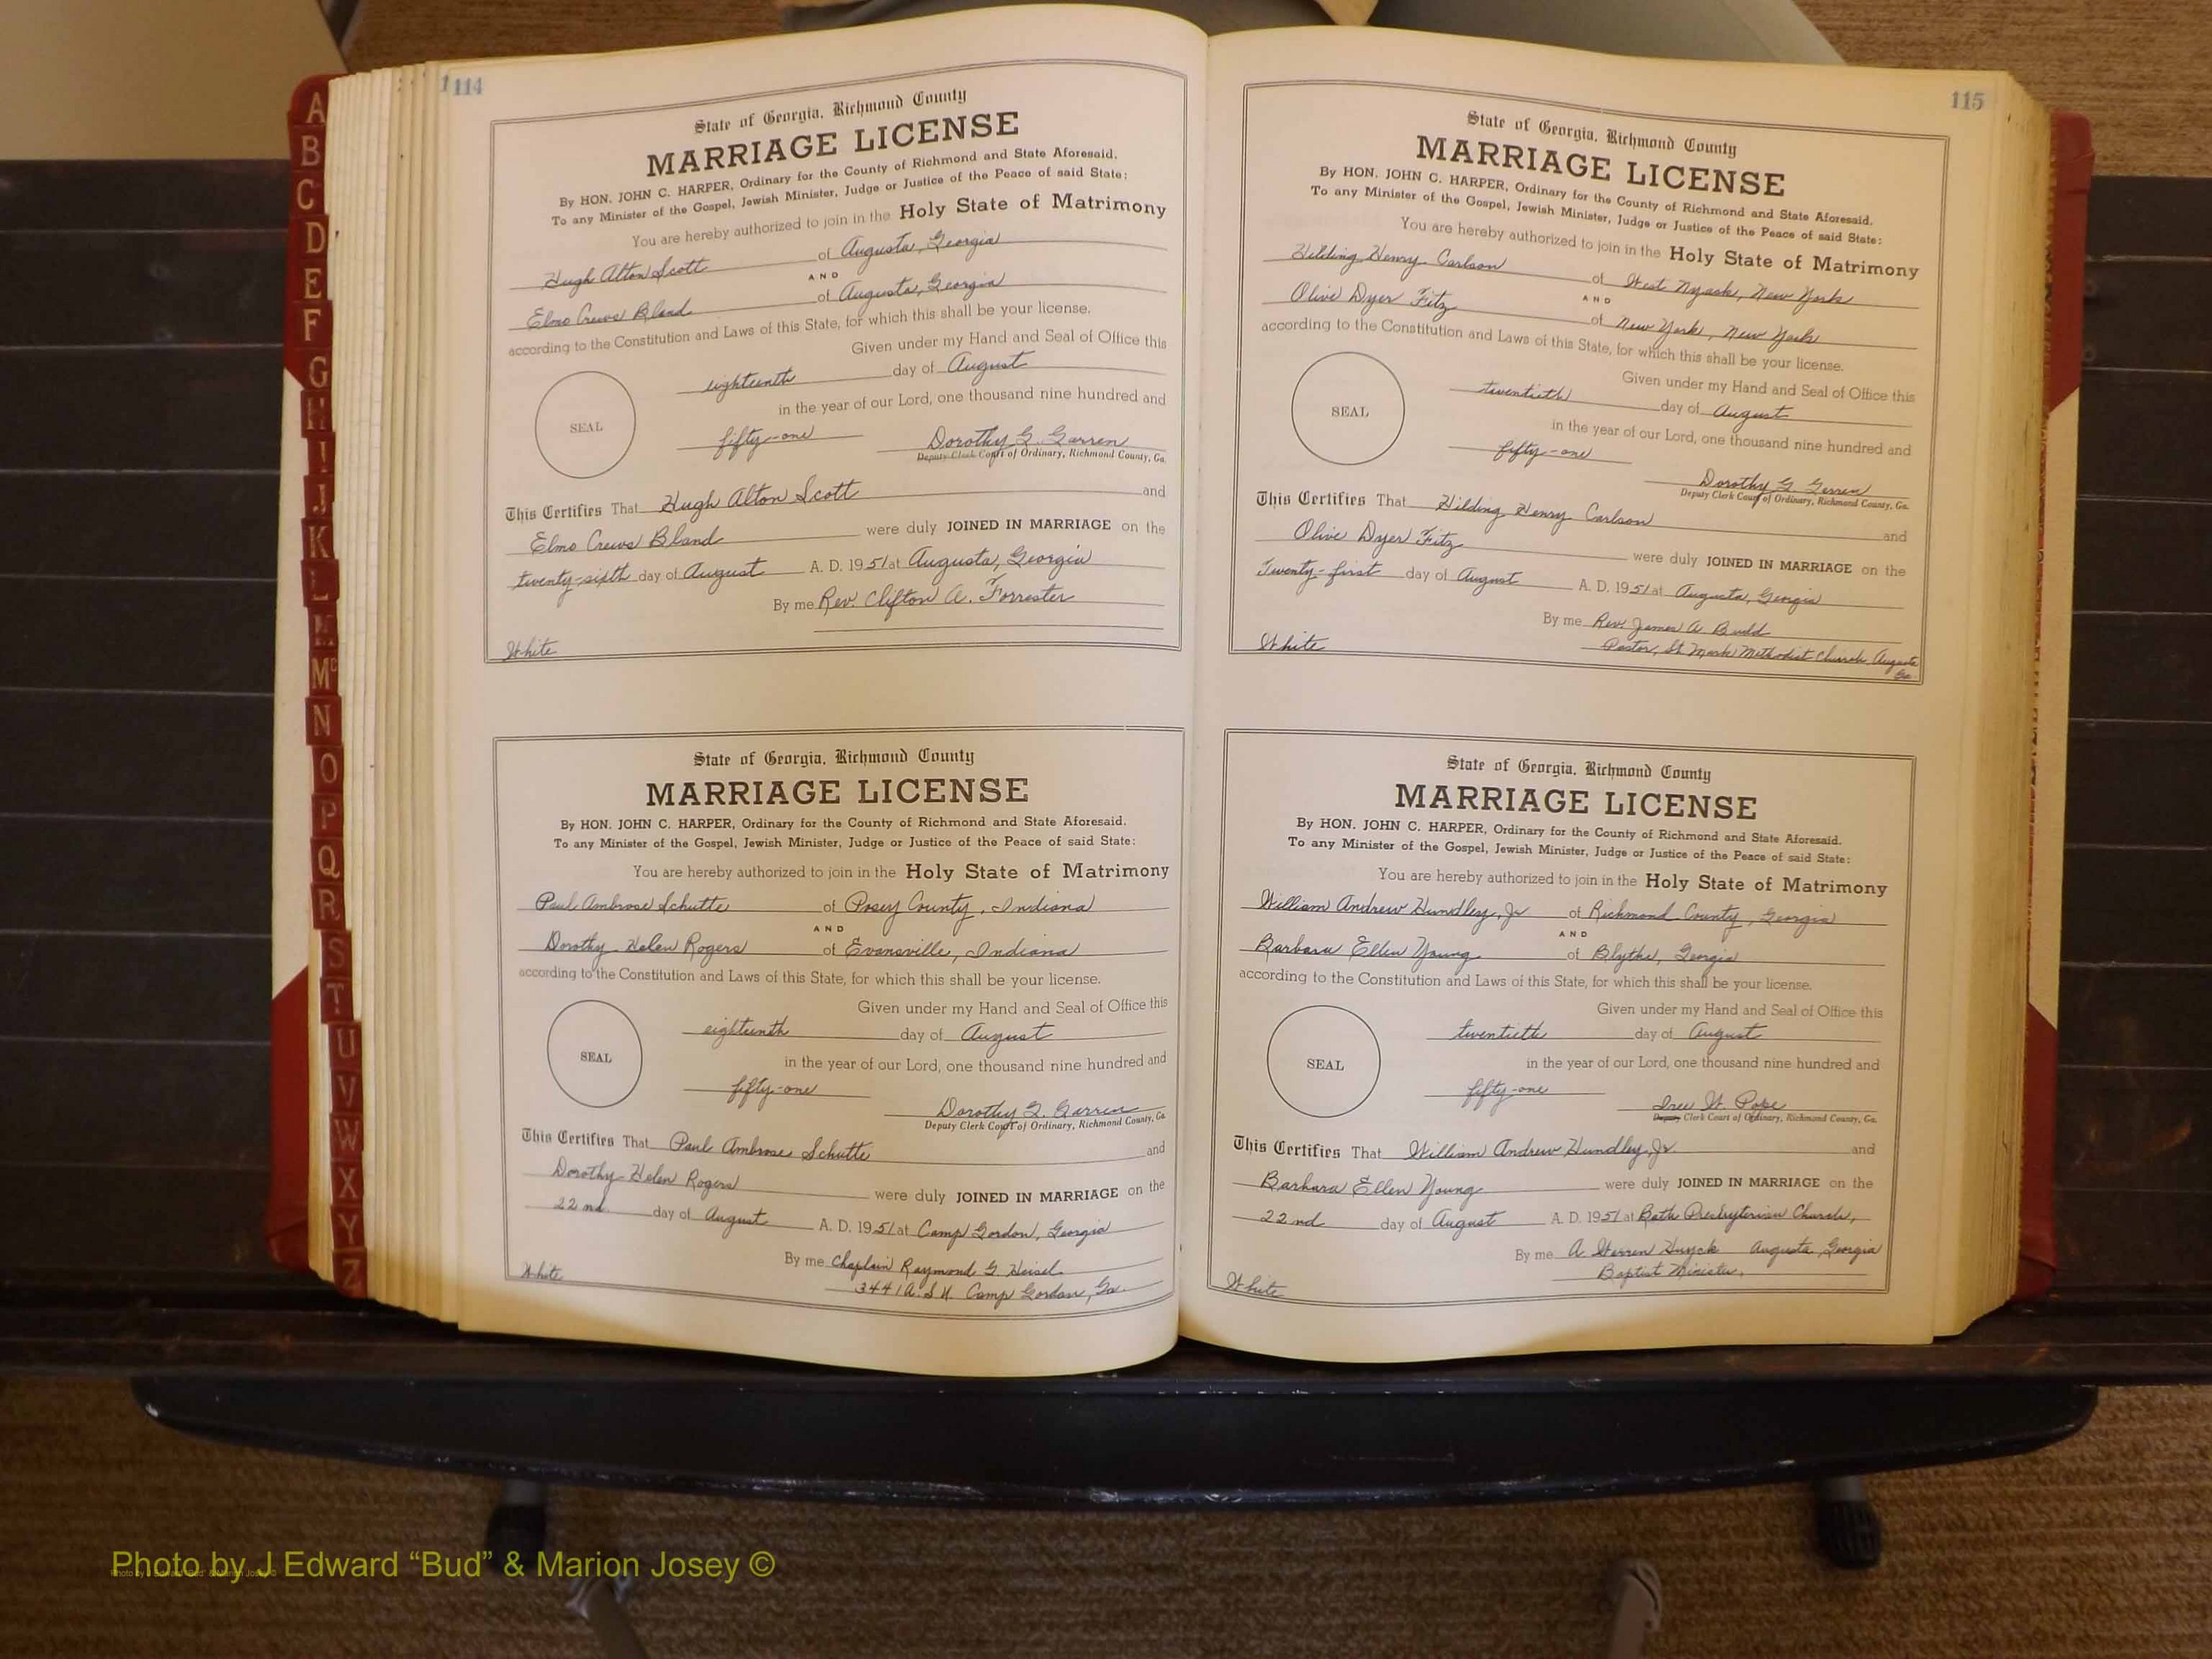 A
B
C
D
E
F
G
H
I
J
K
L
M
Mc
N
O
P
Q
R
S
T
U
V
W
X
Y
Z
114
State of Georgia, Richmond County
MARRIAGE LICENSE
By HON. JOHN C. HARPER, Ordinary for the County of Richmond and State Aforesaid.
To any Minister of the Gospel, Jewish Minister, Judge or Justice of the Peace of said State:
You are hereby authorized to join in the Holy State of Matrimony
Hugh Alton Scott of Augusta, Georgia
AND
Elmo Crews Bland of Augusta, Georgia
according to the Constitution and Laws of this State, for which this shall be your license.
Given under my Hand and Seal of Office this
eighteenth day of August
in the year of our Lord, one thousand nine hundred and
SEAL
fifty-one Dorothy G. Garren
Deputy Clerk Court of Ordinary, Richmond County, Ga.
This Certifies That Hugh Alton Scott and
Elmo Crews Bland were duly JOINED IN MARRIAGE on the
twenty-sixth day of August A. D. 1951 at Augusta, Georgia
By me Rev. Clifton A. Forrester
White
State of Georgia, Richmond County
MARRIAGE LICENSE
By HON. JOHN C. HARPER, Ordinary for the County of Richmond and State Aforesaid.
To any Minister of the Gospel, Jewish Minister, Judge or Justice of the Peace of said State:
You are hereby authorized to join in the Holy State of Matrimony
Paul Ambrose Schutte of Posey County, Indiana
AND
Dorothy Helen Rogers of Evansville, Indiana
according to the Constitution and Laws of this State, for which this shall be your license.
Given under my Hand and Seal of Office this
eighteenth day of August
SEAL
in the year of our Lord, one thousand nine hundred and
fifty-one Dorothy G. Garren
Deputy Clerk Court of Ordinary, Richmond County, Ga.
This Certifies That Paul Ambrose Schutte and
Dorothy Helen Rogers were duly JOINED IN MARRIAGE on the
22nd day of August A. D. 1951 at Camp Gordon, Georgia
By me Chaplain Raymond G. Heisel
3441 A.S.U. Camp Gordon, Ga.
White
115
State of Georgia, Richmond County
MARRIAGE LICENSE
By HON. JOHN C. HARPER, Ordinary for the County of Richmond and State Aforesaid.
To any Minister of the Gospel, Jewish Minister, Judge or Justice of the Peace of said State:
You are hereby authorized to join in the Holy State of Matrimony
Hilding Henry Carlson of West Nyack, New York
AND
Olive Dyer Fitz of New York, New York
according to the Constitution and Laws of this State, for which this shall be your license.
Given under my Hand and Seal of Office this
twentieth day of August
SEAL
in the year of our Lord, one thousand nine hundred and
fifty-one Dorothy G. Garren
Deputy Clerk Court of Ordinary, Richmond County, Ga.
This Certifies That Hilding Henry Carlson and
Olive Dyer Fitz were duly JOINED IN MARRIAGE on the
Twenty-first day of August A. D. 1951 at Augusta, Georgia
By me Rev. James A Budd
Pastor, St. Mark Methodist Church, Augusta
Ga.
White
State of Georgia, Richmond County
MARRIAGE LICENSE
By HON. JOHN C. HARPER, Ordinary for the County of Richmond and State Aforesaid.
To any Minister of the Gospel, Jewish Minister, Judge or Justice of the Peace of said State:
You are hereby authorized to join in the Holy State of Matrimony
William Andrew Hundley, Jr of Richmond County, Georgia
AND
Barbara Ellen Young of Blythe, Georgia
according to the Constitution and Laws of this State, for which this shall be your license.
Given under my Hand and Seal of Office this
twentieth day of August
SEAL
in the year of our Lord, one thousand nine hundred and
fifty-one W. Pope
Deputy Clerk Court of Ordinary, Richmond County, Ga.
This Certifies That William Andrew Hundley, Jr. and
Barbara Ellen Young were duly JOINED IN MARRIAGE on the
22nd day of August A. D. 1951 at Bath Presbyterian Church,
By me A Warren Huyck Augusta, Georgia
Baptist Minister.
White
Photo by J Edward “Bud” & Marion Josey ©